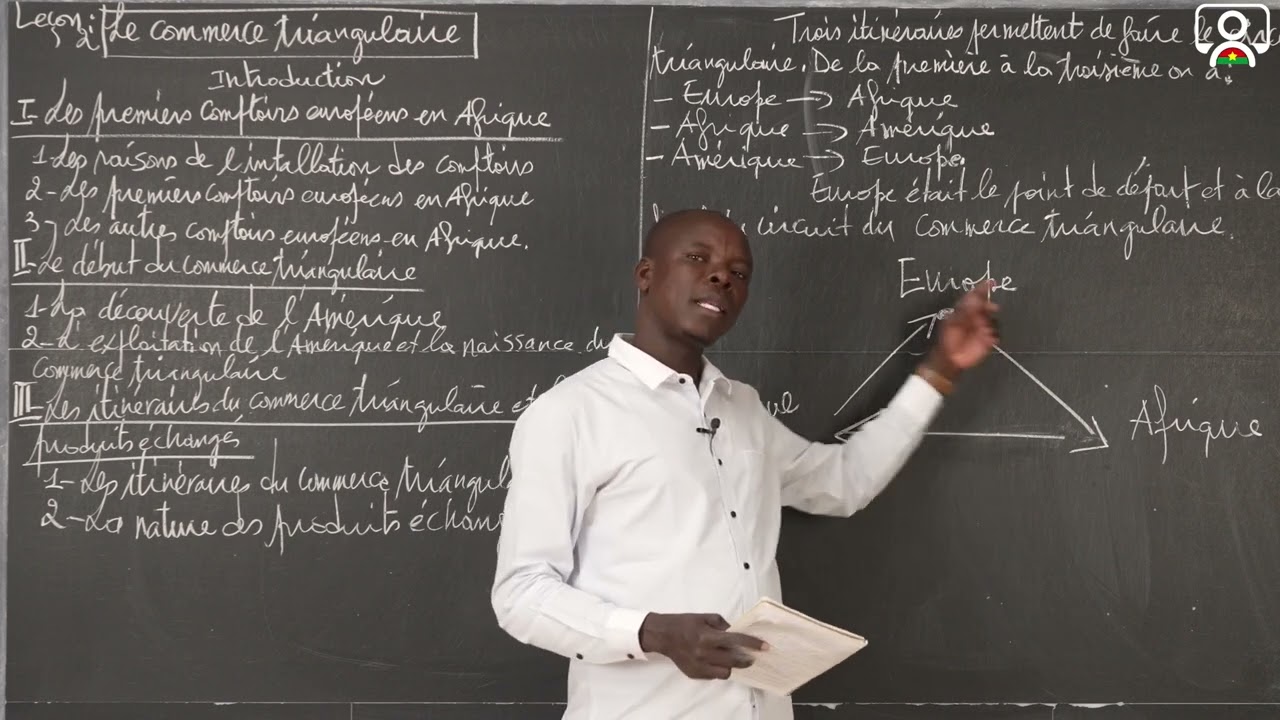 Leçon 2: Le commerce triangulaire
Introduction
I- Les premiers comptoirs européens en Afrique
1- Les raisons de l'intallation des comptoirs
2- Les premiers comptoirs européens en Afrique
3- Les autres comptoirs européens en Afrique.
II- Le début du commerce triangulaire
1- La découverte de l'Amérique
2- L'exploitation de l'Amérique et la naissance du
Commerce triangulaire
III- Les itinéraires du commerce triangulaire et
produits échangés
1- Les itinéraires du commerce triangul
2- La nature des produits échan
Trois itinéraires permettent de faire le
triangulaire. De la première à la troisième on a:
- Europe → Afrique
- Afrique → Amérique
- Amérique → Europe.
Europe était le point de départ et à la
circuit du commerce triangulaire.
Europe
Afrique